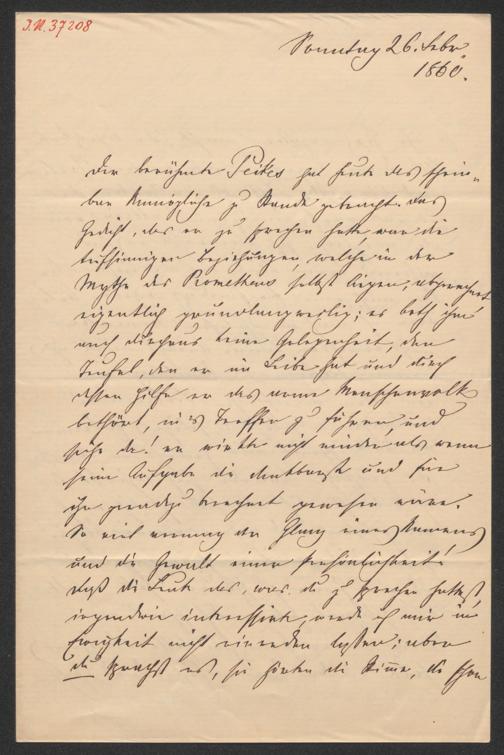 J.N. 37208
Sonntag 26. Febr.
1860.
Der berühmte Peikes hat heute das schein-
bar Unmögliche zu Stande gebracht. Das
Gedicht, das er zu sprechen hatte, war die
tiefsinnigen Beziehungen, welche in der
Mythe des Prometheus selbst liegen, abgerechnet
eigentlich grundlangweilig; es both ihm
auch durchaus keine Gelegenheit, den
Teufel, den er im Leibe hat und durch
dessen Hilfe er das arme Menschenvolk
bethört, in's Treffen zu führen, und
siehe da! er wirkte nicht minder als wenn
seine Aufgabe die dankbarste und für
ihn geradezu berechnet gewesen wäre.
So viel vermag der Glanz eines Namens
und die Gewalt einer Persönlichkeit!
Daß die Leute das, was du zu sprechen hattest,
irgendwie interessirte, werde ich mir in
Ewigkeit nicht einreden lassen; aber
du sprachst es, sie hörten die Stimme, die schon